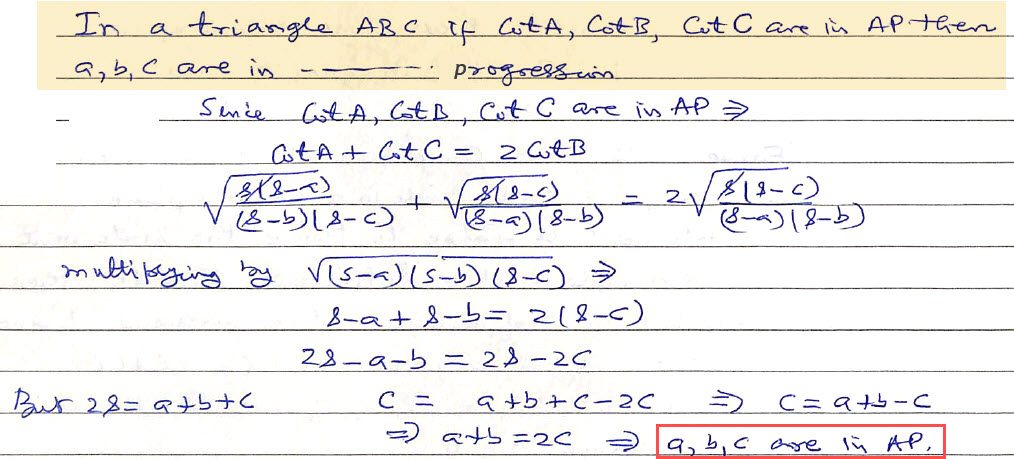 In a triangle ABC if Cot A, Cot B, Cot C are in AP then
a, b, c are in ------- progression
Since Cot A, Cot B, Cot C are in AP ⇒
Cot A + Cot C = 2 Cot B
√(s(s-a)/(s-b)(s-c)) + √(s(s-c)/(s-a)(s-b)) = 2√(s(s-c)/(s-a)(s-b))
multiplying by √(s-a)(s-b)(s-c) ⇒
s-a + s-b = 2(s-c)
2s-a-b = 2s-2c
But 2s = a+b+c c = a+b+c-2c ⇒ c = a+b-c
⇒ a+b = 2c ⇒ a, b, c are in AP.